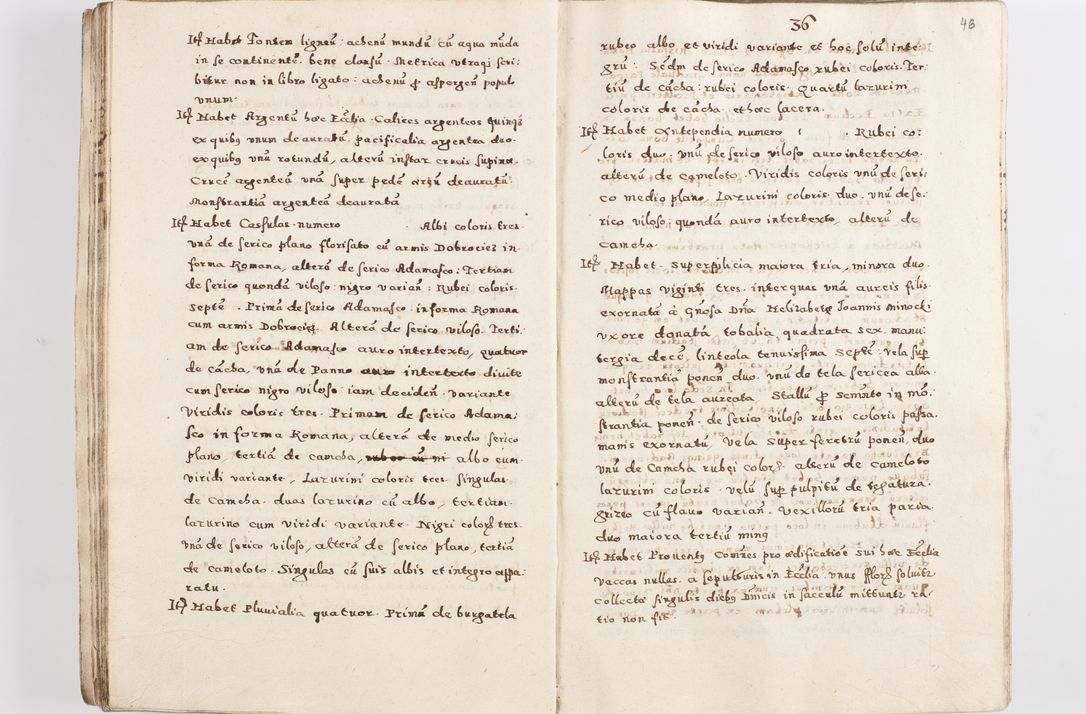 Itē Habet Fontem ligneū: achenū mundū cū aqua mūda
in se continentē. bene clausū. Metrica utraqз scri:
bitur non in libro ligato: achenū ꝓ aspergen̄ popul
unum.
Itē Habet Argentū hæc Eccłia. Calices argenteos quinqз
ex quibꝫ unum deauratū. pacificalia argentea duo
ex quibꝫ unū rotundū, alterū instar crucis supina.
Crucē argenteā unā super pedē deauratū.
Monstrantiā argenteā deauratā
Itē Habet Casſulas numero Albi coloris tres
unā de serico plano florisato cū armis Dobrociez in
forma Romana, alterā de serico Adamasco: Tertiam
de serico quondā viloso: nigro varian̄: Rubei coloris
septē. Primā de serico Adamasco in forma Romana
cum armis Dobrociez Alterā de serico vilosō. Terti:
am de serico Adamasco auro intertexto, quatuor
de cācha, unā de Panno auro intertexto divite
cum serico nigro viloso iam deciden̄ variante
Viridis coloris tres. Primam de serico Adama:
sco in forma Romana, alterā de medio serico
plano, tertiā de camcha, albo cum
viridi variante, Lazurini coloris tres singulas
de Camcha. duas lazurino cū albo, tertiam
lazurino cum viridi variante. Nigri coloris tres
unā de serico viloso, alterā de serico plano, tertiā
de cameloto. Singulas cū suis albis et integro appa:
ratu.
Itē Habet Pluvialia quatuor. Primā de burgatela
36
48
rubeo albo et viridi variante et hoc solū inte:
grū. Scdm de serico Adamasco rubei coloris. Ter:
tiū de cācha: rubei coloris. Quartū lazurini
coloris de cācha. et hoc lacera.
Itē Habet Antependia numero Rubei co:
loris duo. unū de serico viloso auro intertexto.
alterū de cameloto. Viridis coloris unū de seri:
co medio plano, Lazurini coloris duo. unū de se:
rico viloso: quondā auro intertexto, alterū de
camcha.
Itē Habet. Superpilicia maiora tria, minora duo.
Mappas viginti tres. inter quas unā aureis filis
exornatā à Gn̄osa Dn̄a Helizabeta Joannis Minocki
uxore donatā, tobalia quadrata sex. manu:
tergia decē, linteola tenuissima septē. vela sup
monstrantiā ponen̄ duo. unū de tela sericea alba.
alterū de tela aureata, Stallū ꝓ Scm̄to in mō.
strantia ponen̄. de serico viloso rubei coloris passa.
manis exornatū, Vela super feretrū ponen̄, duo
unū de Camcha rubei color. alterū de cameloto
lazurini coloris. velū sup pulpitū de
grizeo cū flauo varian̄. Vexillorū tria paria.
duo maiora tertiū minꝫ
Itē Habet Proventꝫ Com̄nes pro ædificatiōe sui hæc Eccłia
vaccas nullas. a sepulturis in Eccłia. unus flor soluitz
collecta singulis diebꝫ Dn̄icis in sacculū mittuntz ra:
tio non fit.